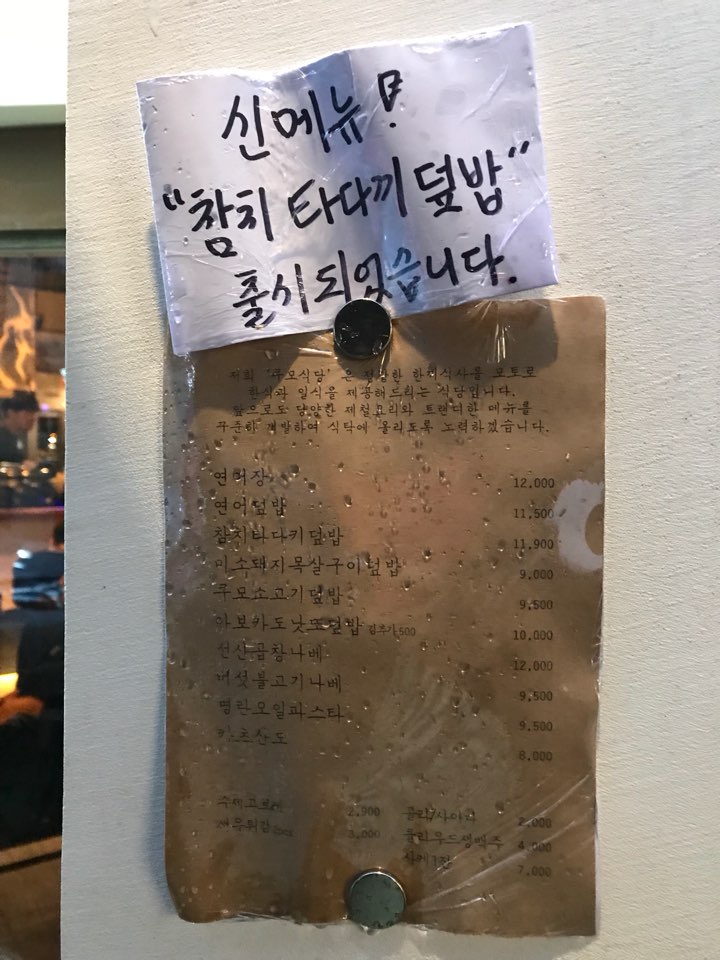 신메뉴!
"참치 타다끼 덮밥"
출시되었습니다.
저희 '루모식당' 은 정갈한 한끼식사를 모토로
한식과 일식을 제공해드리는 식당입니다.
앞으로도 다양한 제철요리와 트렌디한 메뉴를
꾸준히 개발하여 식탁에 올리도록 노력하겠습니다.
연어장 12,000
연어덮밥 11,500
참치타다키덮밥 11,900
미소돼지목살구이덮밥 9,000
루모소고기덮밥 9,500
아보카도낫또덮밥 김추가500 10,000
곱창나베 12,000
버섯불고기나베 9,500
명란오일파스타 9,500
카츠산도 8,000
수제고로케 2,900 콜라/사이다 2,000
새우튀김 3,000 플리우드생맥주 4,000
사케1잔 7,000